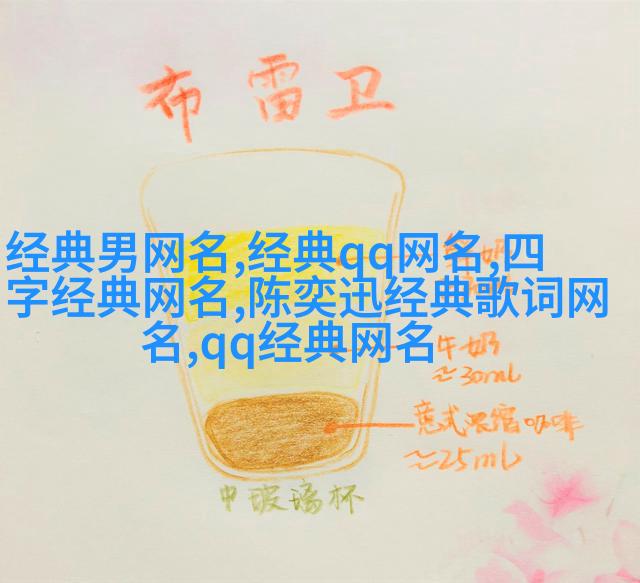 布雷卫
经典男网名,经典qq网名,四
字经典网名,陈奕迅经典歌词网
名,qq经典网名
牛奶
≈30ml
意式浓缩咖啡
≈25ml
中玻璃杯